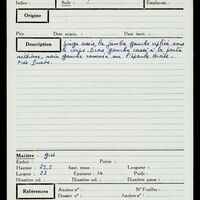 Indice : Style : Emplacem. :
Origine
Prix Date acquis. Invent.
Description Singe assis, la jambe gauche repliée sous
le corps. Bras gauche cassé à la partie
main gauche ramenée sur l'épaule droite.
Matière : grès
Enduit : Patine :
Hauteur : 35,5 haut. tenon : Longueur :
Largeur : 23 Epaisseur : 14 Poids :
Diamètre col. : Diamètre panse : Diamètre cul. :
Références Anciens nos : No Fouilles :
Dossier : Analyse no :